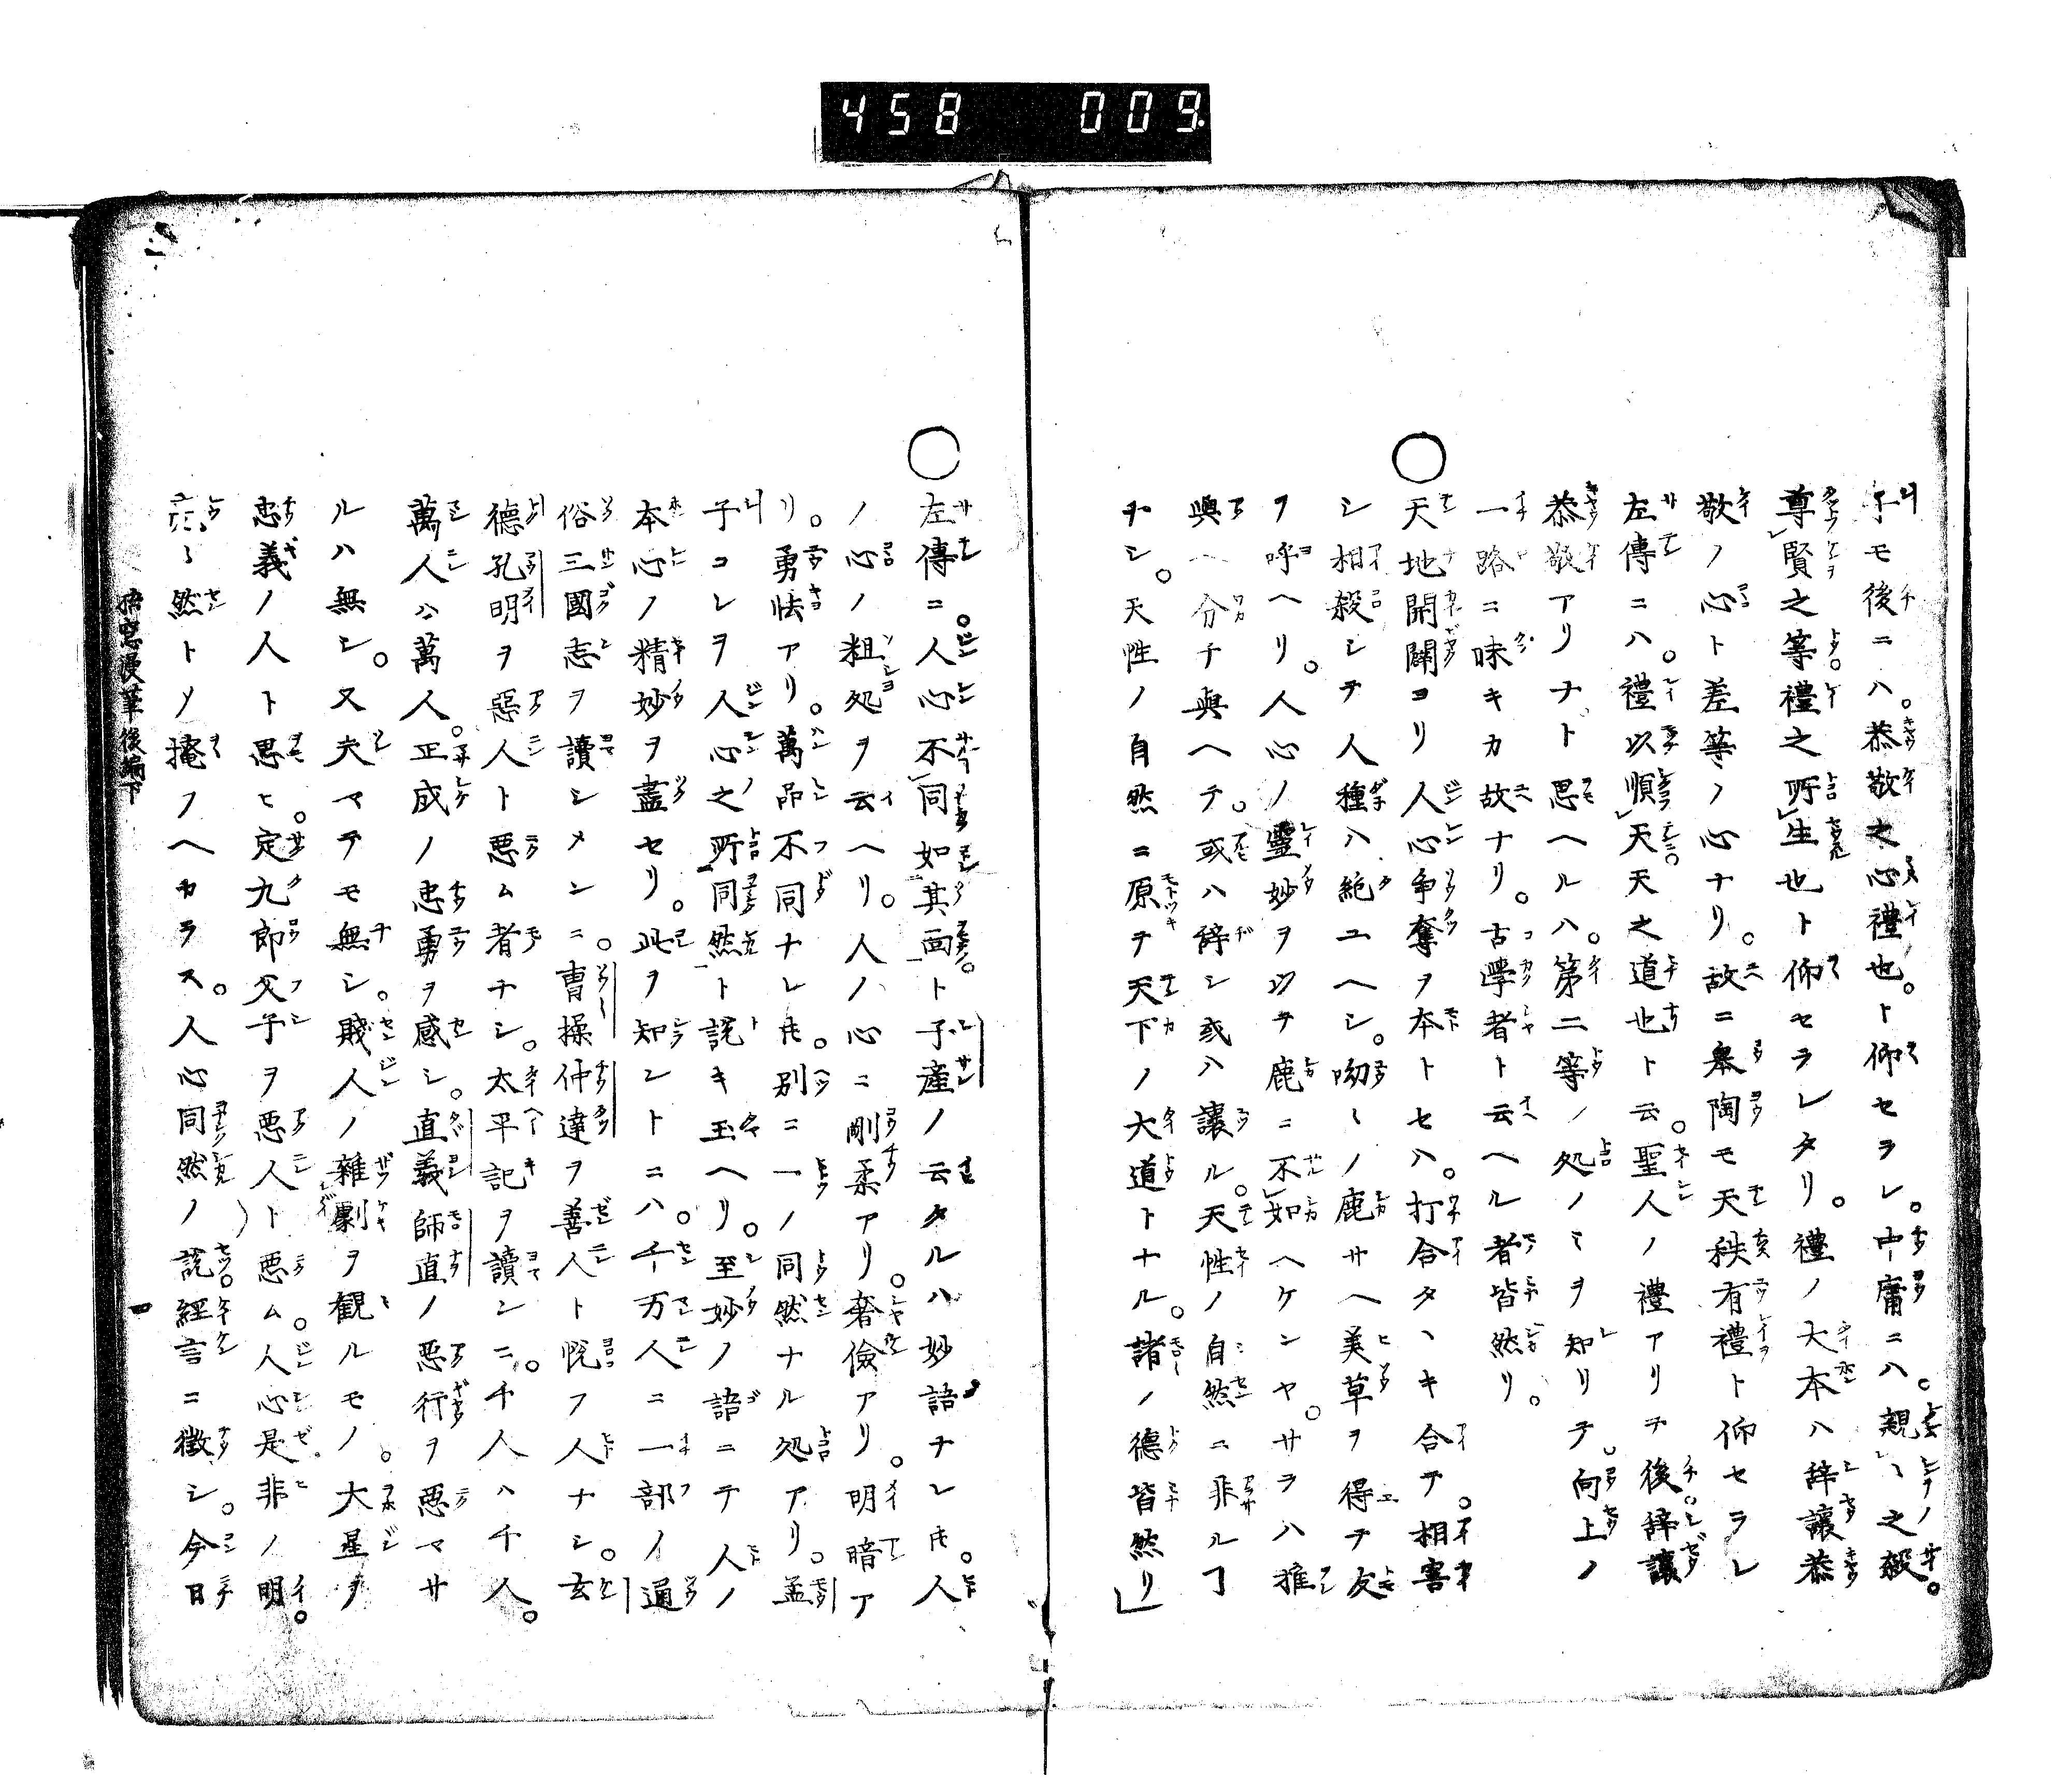 458 009
子モ後ニハ。恭敬之心禮也。ト仰セラレ。中庸ニハ。親〻之殺。
尊賢之等禮之所生也ト仰セラレタリ。禮ノ大本ハ辞讓恭
敬ノ心ト差等ノ心ナリ。故ニ皐陶モ天秩有禮ト仰セラレ
左傳ニハ。禮以順天天之道也ト云。聖人ノ禮アリテ後。辞讓
恭敬アリナト思ヘルハ。第二等ノ処ノミヲ知リテ。向上ノ
一路ニ昧キカ故ナリ。古學者ト云ヘル者皆然リ。
○天地開闢ヨリ人心争奪ヲ本トセハ。打合タヽキ合テ。相害
シ相殺シテ人種ハ絶ユヘシ。呦〻ノ鹿サヘ美草ヲ得テ友
ヲ呼ヘリ。人心ノ靈妙ヲ以テ鹿ニ不如ヘケンヤ。サラハ推
與ヘ分チ與ヘテ。或ハ辞シ或ハ讓ル。天性ノ自然ニ非ルヿ
ナシ。天性ノ自然ニ原テ天下ノ大道トナル。諸ノ德皆然リ
○左傳ニ。人心不同如其面ト子産ノ云タルハ妙語ナレ𪜈。人
ノ心ノ粗処ヲ云ヘリ。人ノ心ニ剛柔アリ。奢儉アリ。明暗ア
リ。勇怯アリ。萬品不同ナレ𪜈。別ニ一ノ同然ナル処アリ。孟
子コレヲ人心之所同然ト説キ玉ヘリ。至妙ノ語ニテ人ノ
本心ノ精妙ヲ盡セリ。此ヲ知ントニハ。千万人ニ一部ノ通
俗三國志ヲ讀シメンニ。曹操仲達ヲ善人ト悦フ人ナシ。玄
德孔明ヲ惡人ト悪ム者ナシ。太平記ヲ讀ンニ。千人ハ千人。
萬人ハ萬人。正成ノ忠勇ヲ感シ。直義師直ノ悪行ヲ悪マサ
ルハ無シ。又夫マテモ無シ。賤人ノ雜劇ヲ観ルモノ。大星ヲ
忠義ノ人ト思ヒ。定九郎父子ヲ悪人ト悪ム。人心是非ノ明。
然トソ掩フヘカラス。人心同然ノ説。經言ニ徴シ。今日
梧窓漫筆後編下